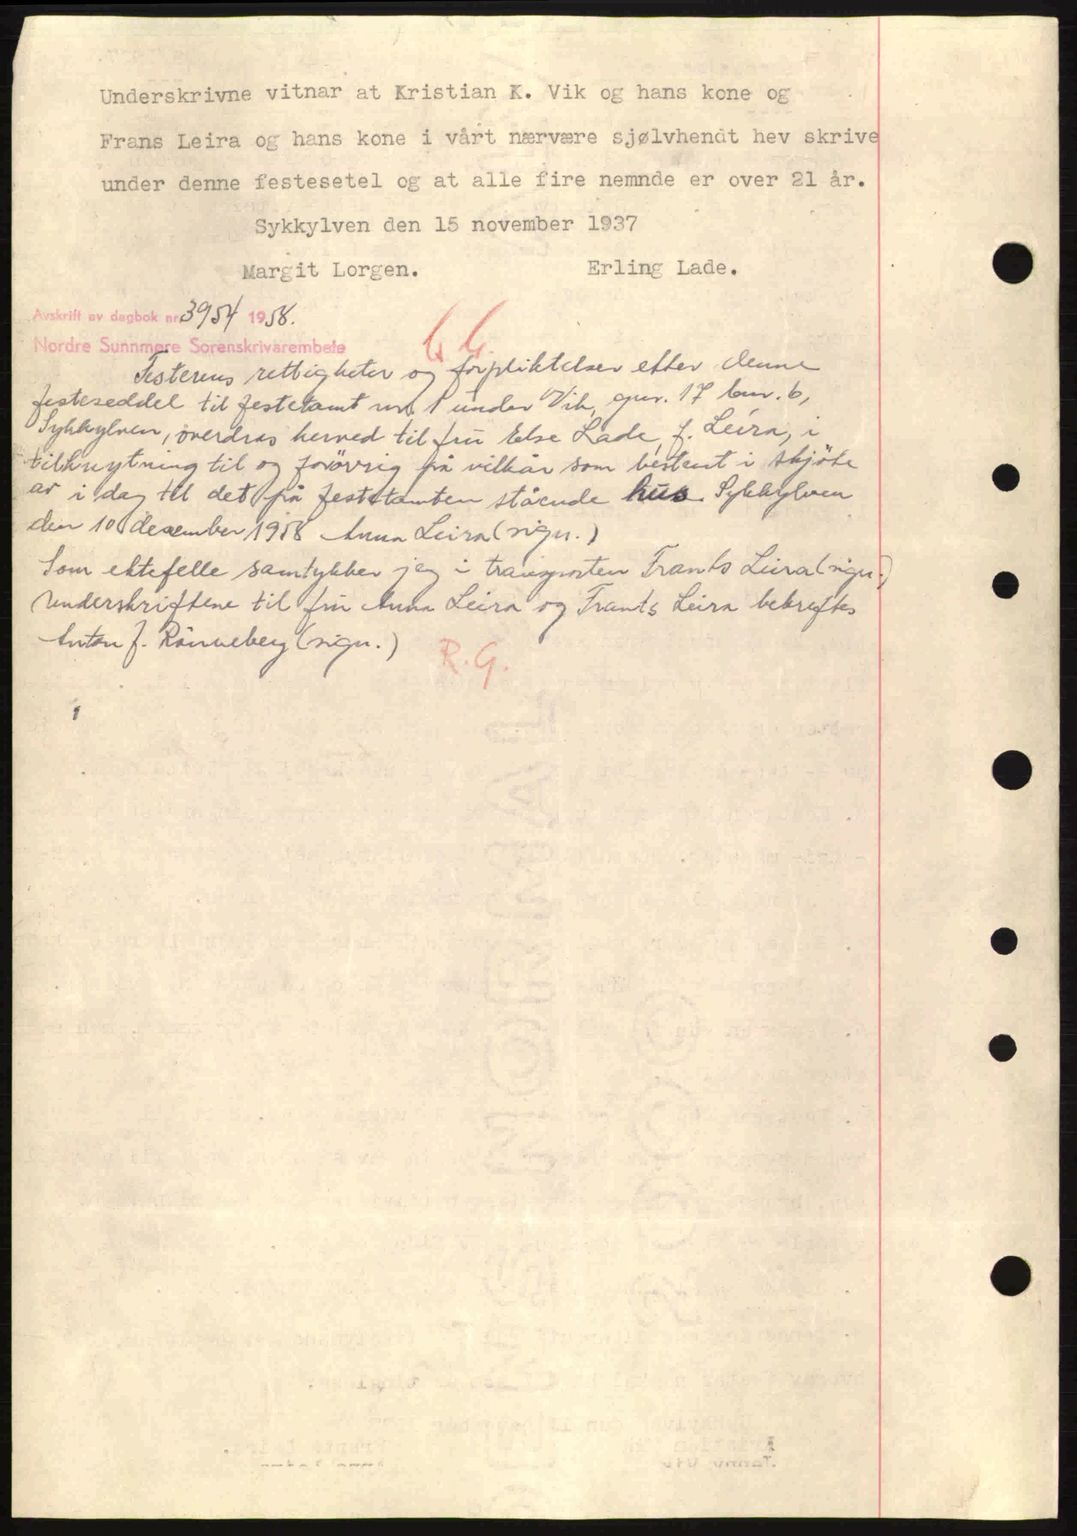 Underskrivne vitnar at Kristian K. Vik og hans kone og
Frans Leira og hans kone i vårt nærvære sjølvhendt hev skrive
under denne festesetel og at alle fire nemnde er over 21 år.
Sykkylven den 15 november 1937
Margit Lorgen. Erling Lade.
Avskrift av dagbok nr 3954 1958.
Nordre Sunnmøre Sorenskrivarembete
Festerens rettigheter og forpliktelser etter denne
festeseddel til festetomt nr. 1 under Vik, gnr. 17 bnr. 6,
Sykkylven, overdras herved til fru Else Lade, f. Leira, i
tilknytning til og forövrig på vilkår som bestemt i skjöte
av i dag til det på festetomten stående hus. Sykkylven
den 10 desember 1958 Anna Leira (sign.)
Som ektefelle samtykker jeg i transporten Frants Leira (sign.)
Underskriftene til fru Anna Leira og Frants Leira bekreftes
Anton J. Rönneberg (sign.)
R.G.